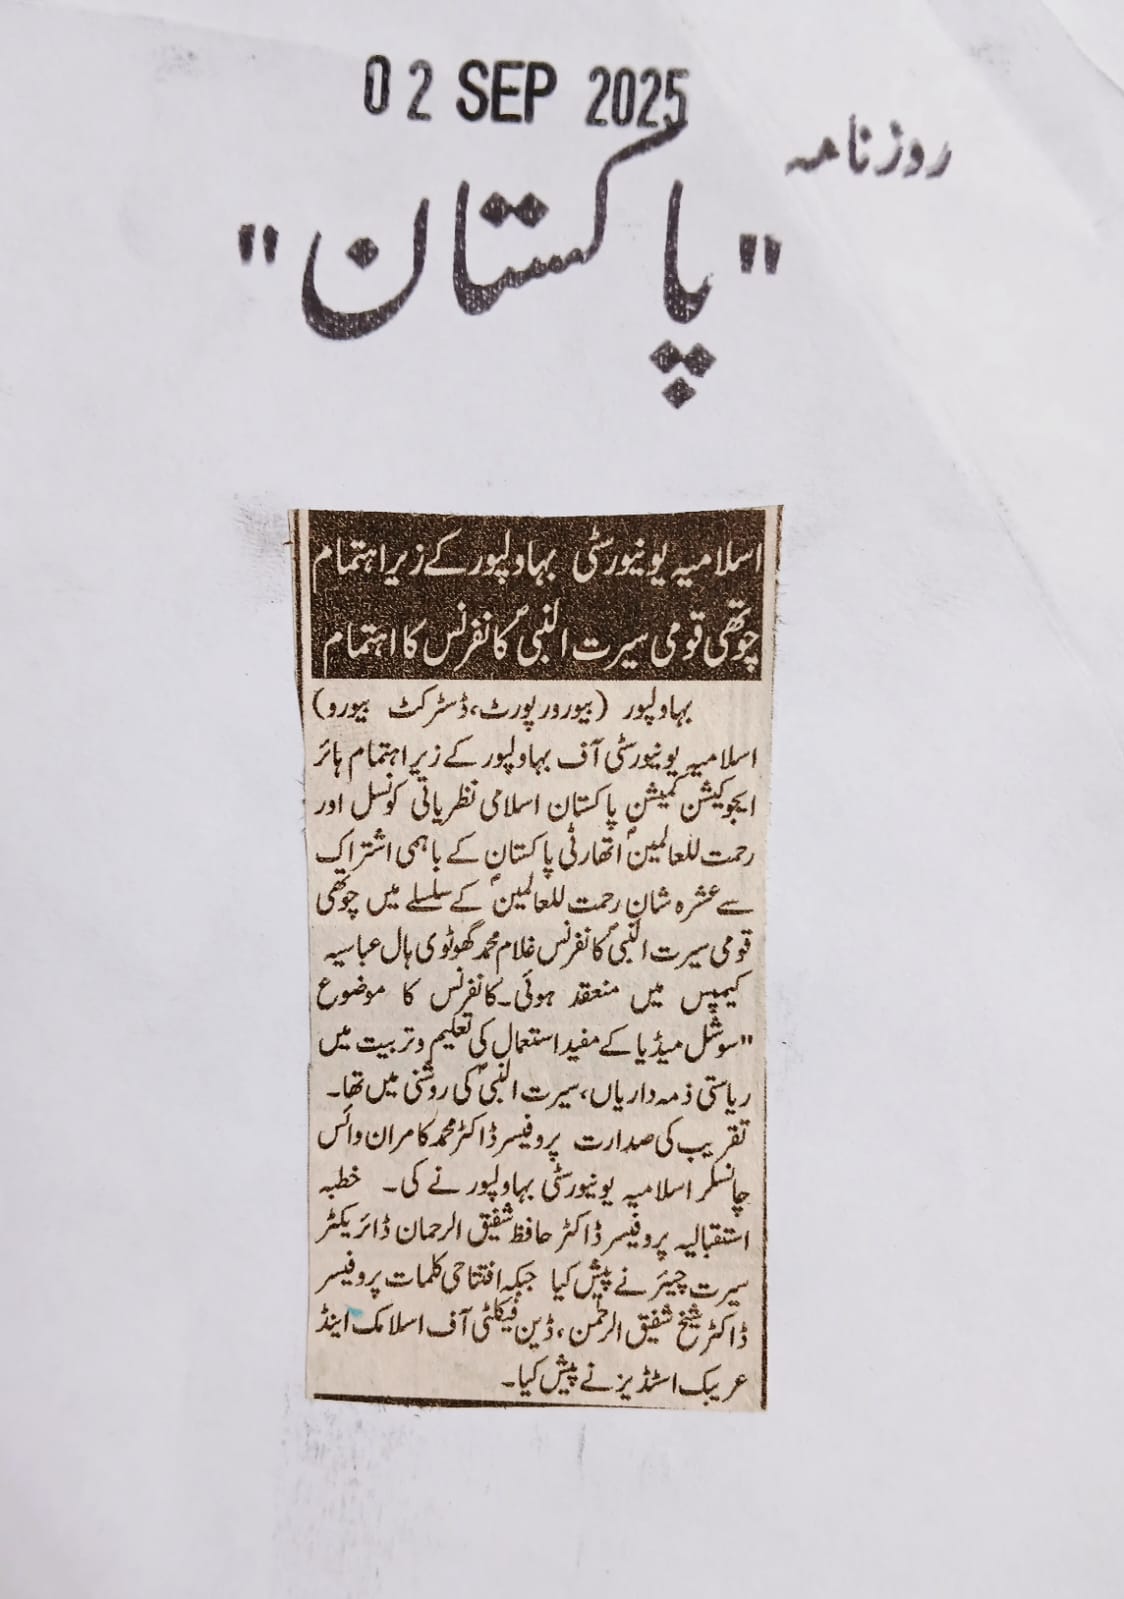 02 SEP 2025
روزنامہ
"پاکستان"
اسلامیہ یونیورسٹی بہاولپور کے زیر اہتمام
چوتھی قومی سیرت النبیؐ کانفرنس کا اہتمام
بہاولپور (بیورورپورٹ، ڈسٹرکٹ بیورو)
اسلامیہ یونیورسٹی آف بہاولپور کے زیر اہتمام ہائر
ایجوکیشن کمیشن پاکستان اسلامی نظریاتی کونسل اور
رحمت للعالمینؐ اتھارٹی پاکستان کے باہمی اشتراک
سے عشرہ شان رحمت للعالمینؐ کے سلسلے میں چوتھی
قومی سیرت النبیؐ کانفرنس غلام محمد گھوٹوی ہال عباسیہ
کیمپس میں منعقد ہوئی۔ کانفرنس کا موضوع
"سوشل میڈیا کے مفید استعمال کی تعلیم و تربیت میں
ریاستی ذمہ داریاں، سیرت النبیؐ کی روشنی میں تھا۔
تقریب کی صدارت پروفیسر ڈاکٹر محمد کامران وائس
چانسلر اسلامیہ یونیورسٹی بہاولپور نے کی۔ خطبہ
استقبالیہ پروفیسر ڈاکٹر حافظ شفیق الرحمان ڈائریکٹر
سیرت چیئر نے پیش کیا جبکہ افتتاحی کلمات پروفیسر
ڈاکٹر شیخ شفیق الرحمن، ڈین فیکلٹی آف اسلامک اینڈ
عریبک اسٹڈیز نے پیش کیا۔